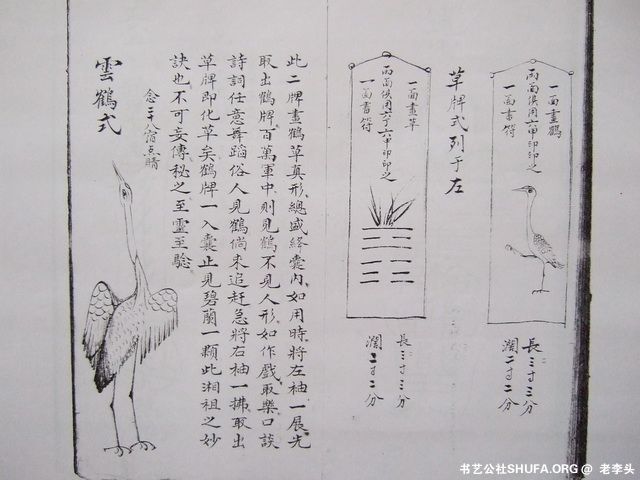 一面畫鶴
兩面俱用六甲印印之
一面書符
長三寸三分
濶二寸二分
草牌式列于左
一面畫草
兩面俱用六丁六甲印印之
一面書符
長三寸三分
濶二寸二分
此二牌畫鶴草真形總盛絳囊內如用時將左袖一展先
取出鶴牌百萬軍中則見鶴不見人形如作戲取樂口談
詩詞任意舞蹈俗人見鶴倘来追赶急將右袖一拂取出
草牌即化草矣鶴牌一入囊止見碧蘭一顆此湘祖之妙
訣也不可妄傳秘之至靈至驗
念二十八宿点睛
雲鶴式
书艺公社SHUFA.ORG @ 老李头